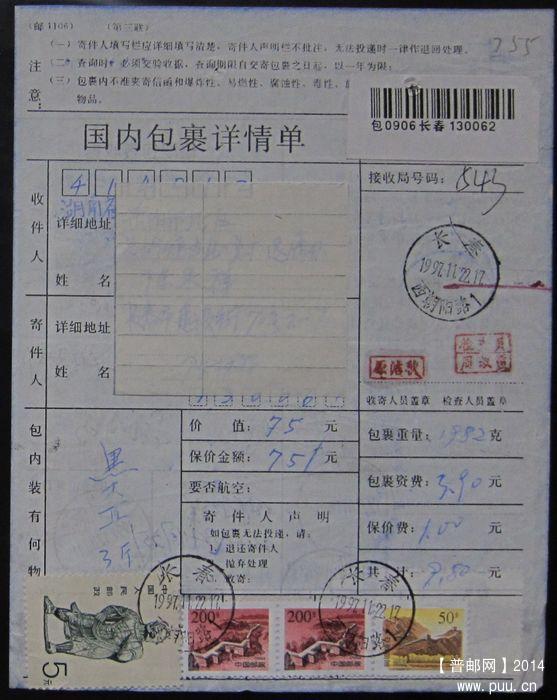 (邮1106) (第三联)
355
注意:
(一) 寄件人填写栏应详细填写清楚, 寄件人声明栏不批注, 无法投递时一律作退回处理。
(二) 查询时, 必须交验收据, 查询期限自交寄包裹之日起, 以一年为限;
(三) 包裹内不准夹寄信函和爆炸性、易燃性、腐蚀性、毒性、
物品。
包0906长春130062
国内包裹详情单
接收局号码: 543
收件人
详细地址
姓 名
寄件人
详细地址
姓 名
长春
1997.11.22.17
西朝阳路1
收寄人员盖章 检查人员盖章
包内装有何物
黑大豆
3斤
价 值: 75 元
保价金额: 75 元
要否航空:
寄 件 人 声 明
如包裹无法投递, 请:
1. 退还寄件人
抛弃处理
收寄:
包裹重量: 1982 克
包裹资费: 3.90 元
保价费: 1.00 元
共 计: 9.80 元
长春
1997.11.22.17
长春
1997.11.22.17
中国人民邮政
5元
200分
中国邮政
200分
中国邮政
50分
【普邮网】2014
www.puu.cn